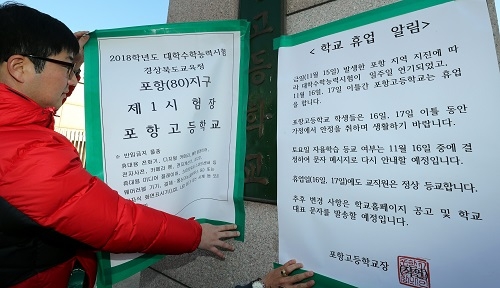 2018학년도 대학수학능력시험
경상북도교육청
포항(80)지구
제 1 시 험 장
포 항 고 등 학 교
※ 반입금지 물품
휴대용 전화기, 디지털
전자사전, 카메라 펜, 전자계산기,
휴대용 미디어 플레이어,
웨어러블 기기,
< 학교 휴업 알림>
금일(11월 15일) 발생한 포항 지역 지진에 따
라 대학수학능력시험이 일주일 연기되었고,
11월 16일, 17일 이틀간 포항고등학교는 휴업
을 합니다.
포항고등학교 학생들은 16일, 17일 이틀 동안
가정에서 안정을 취하며 생활하기 바랍니다.
토요일 자율학습 등교 여부는 11월 16일 중에 결
정하여 문자 메시지로 다시 안내할 예정입니다.
휴업일(16일, 17일)에도 교직원은 정상 등교합니다.
추후 변경 사항은 학교홈페이지 공고 및 학교
대표 문자를 발송할 예정입니다.
포항고등학교장